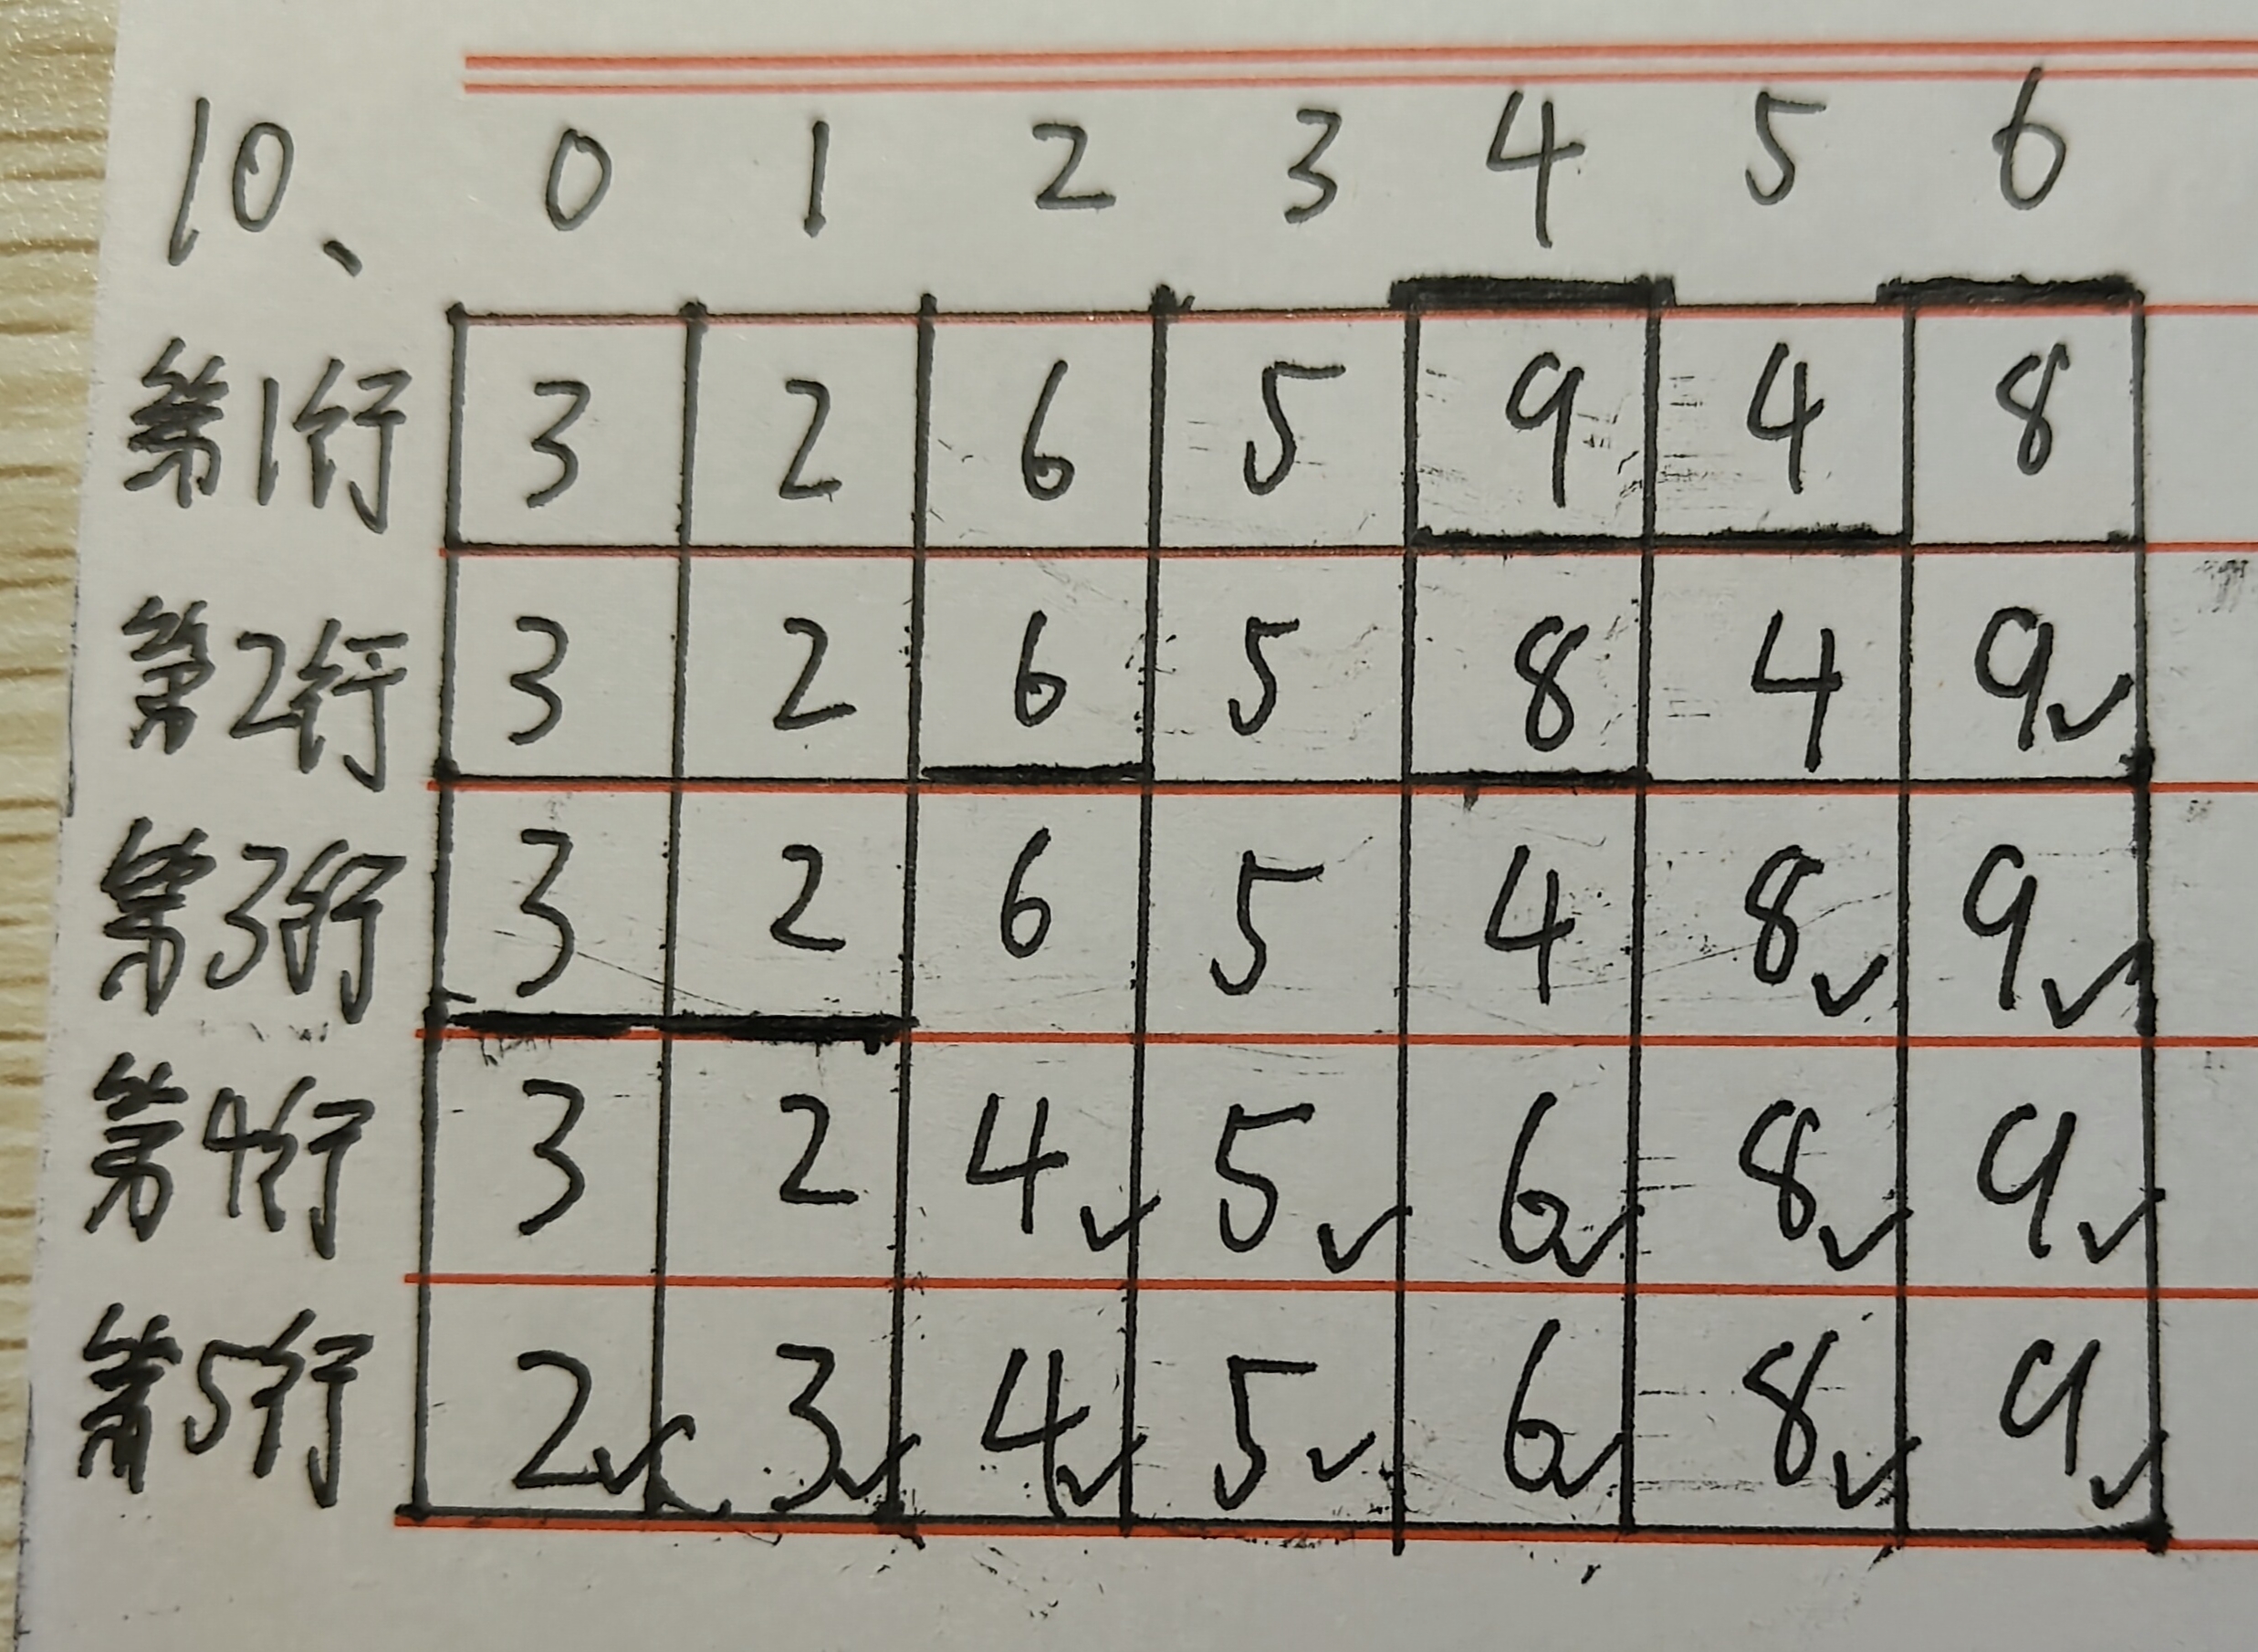 10、 0 1 2 3 4 5 6
第1行 3 2 6 5 9 4 8
第2行 3 2 6 5 8 4 9✓
第3行 3 2 6 5 4 8✓ 9✓
第4行 3 2 4✓ 5✓ 6✓ 8✓ 9✓
第5行 2✓ 3✓ 4✓ 5✓ 6✓ 8✓ 9✓